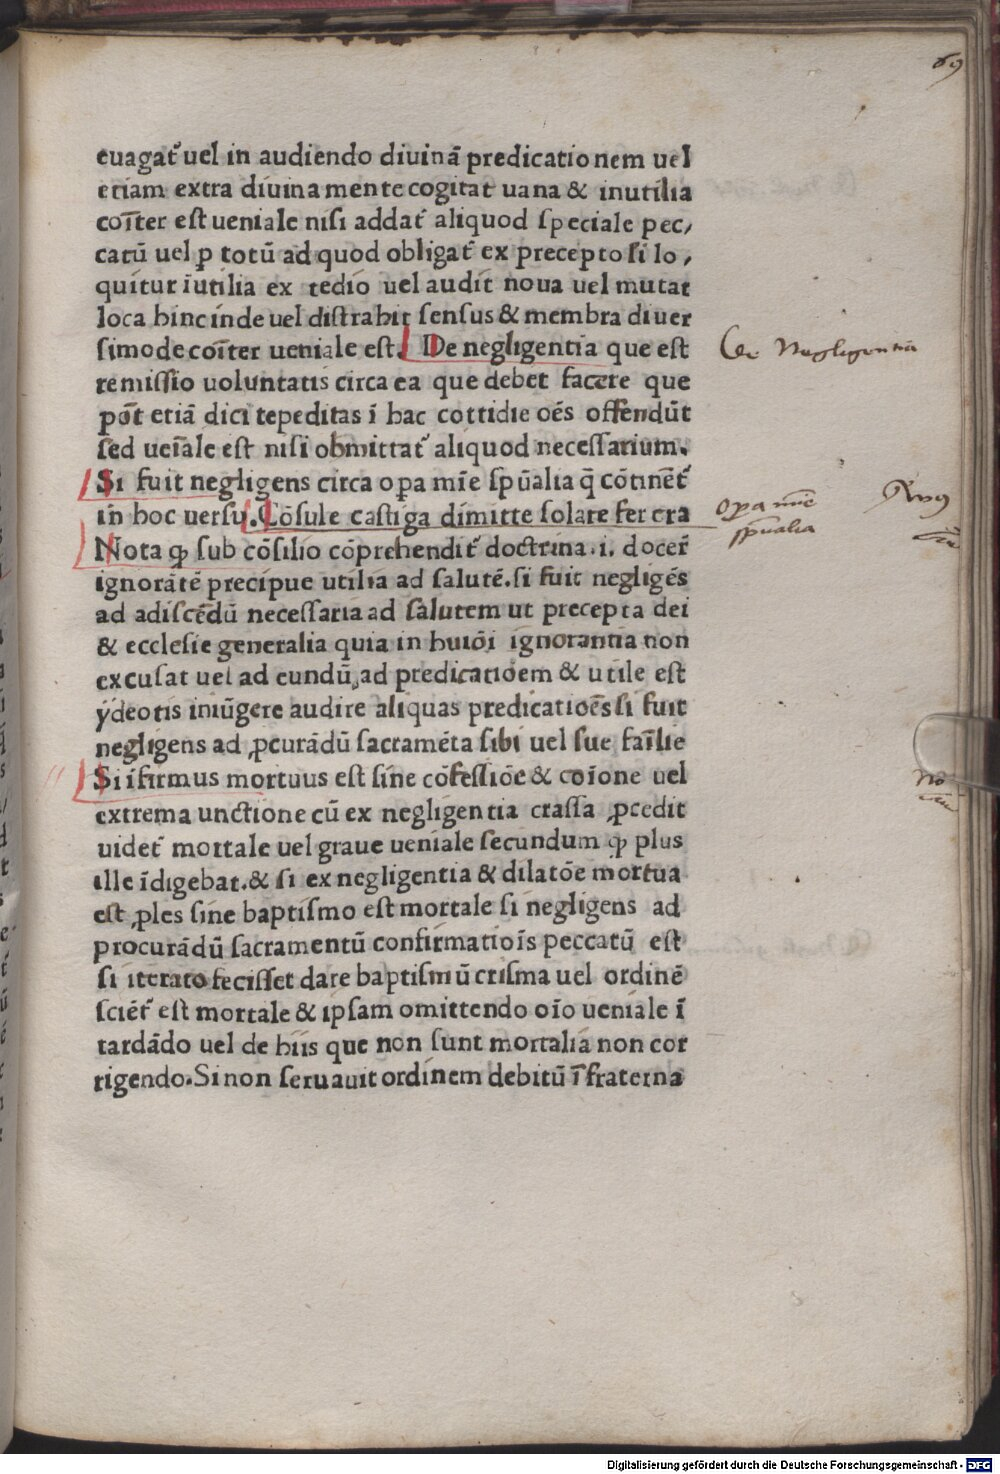 69
euagat᷑ uel in audiendo diuinā predicationem uel
etiam extra diuina mente cogitat uana & inutilia
coīter est ueniale nisi addat᷑ aliquod speciale pec,
catū uel ꝑ totū ad quod obligat᷑ ex precepto si lo,
quitur īutilia ex tedio uel audit noua uel mutat
loca hinc inde uel distrahit sensus & membra diuer
simode coīter ueniale est. De negligentia que est
De Negligentia
remissio uoluntatis circa ea que debet facere que
pōt etiā dici tepeditas ī hac cottidie oēs offendūt
sed ueīale est nisi obmittat᷑ aliquod necessarium.
Si fuit negligens circa opa mīe spūalia q̄ cōtinēt᷑
in hoc uersu. Cōsule castiga dimitte solare fer ora
opa mīe
spūalia
Nota ꝙ sub cōsilio cōprehendit᷑ doctrina .i. docer̄
ignorātē precipue utilia ad salutē. si fuit negligēs
ad adiscēdū necessaria ad salutem ut precepta dei
& ecclesie generalia quia in huiōi ignorantia non
excusat uel ad eundū ad predicatiōem & utile est
ydeotis iniūgere audire aliquas predicatioēs si fuit
negligens ad ꝓcurādū sacramēta sibi uel sue faīlie
Si īfirmus mortuus est sine cōfessiōe & coīone uel
extrema unctione cū ex negligentia crassa ꝓcedit
uidet᷑ mortale uel graue ueniale secundum ꝙ plus
ille īdigebat. & si ex negligentia & dilatōe mortua
est ꝓles sine baptismo est mortale si negligens ad
procurādū sacramentū confirmatioīs peccatū est
si iterato fecisset dare baptismū crisma uel ordinē
sciēt᷑ est mortale & ipsam omittendo oīo ueniale ī
tardādo uel de hiis que non sunt mortalia non cor
rigendo. Si non seruauit ordinem debitū ī fraterna
Digitalisierung gefördert durch die Deutsche Forschungsgemeinschaft - DFG